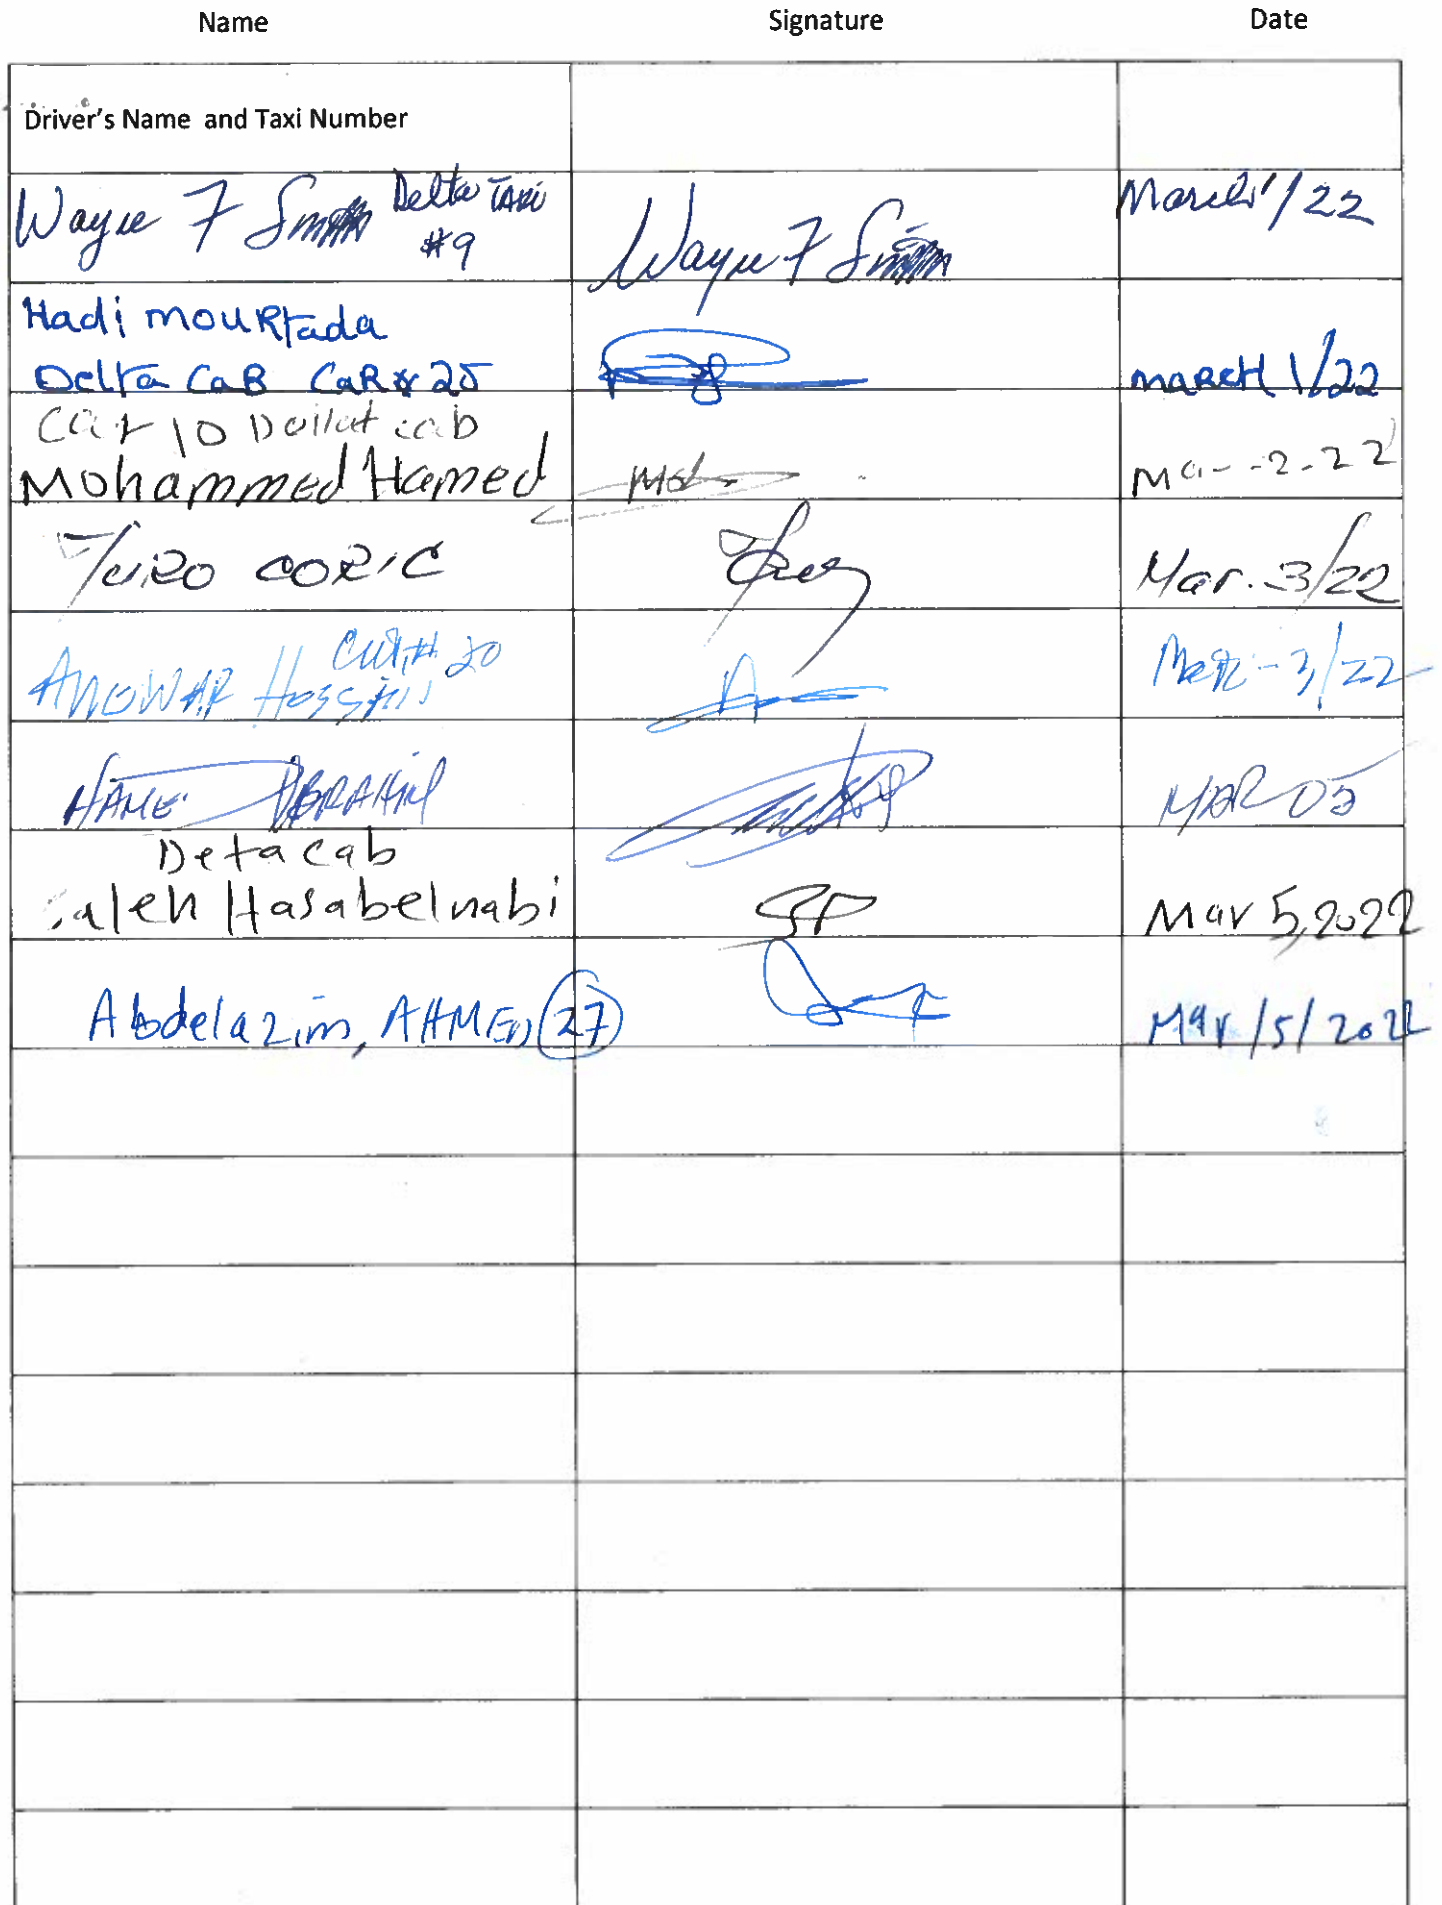 Name Signature Date
Driver's Name and Taxi Number
Wayne F Smith Delta Taxi
#9
Wayne F Smith
March 1/22
Hadi mouRtada
Delta CaB CaR # 25
maRcH 1/22
Car 10 cab
Mohammed Hamed
Moh
Ma--2-22
CORIC
Mar. 3/22
#20
ANOWAR HOSSAIN
3/22
HAMEI IBRAHIM
MAR 05
Deta cab
aleh Hasabelnabi
Mar 5, 2022
Abdelazim, AHMED 27
Mar/5/2022